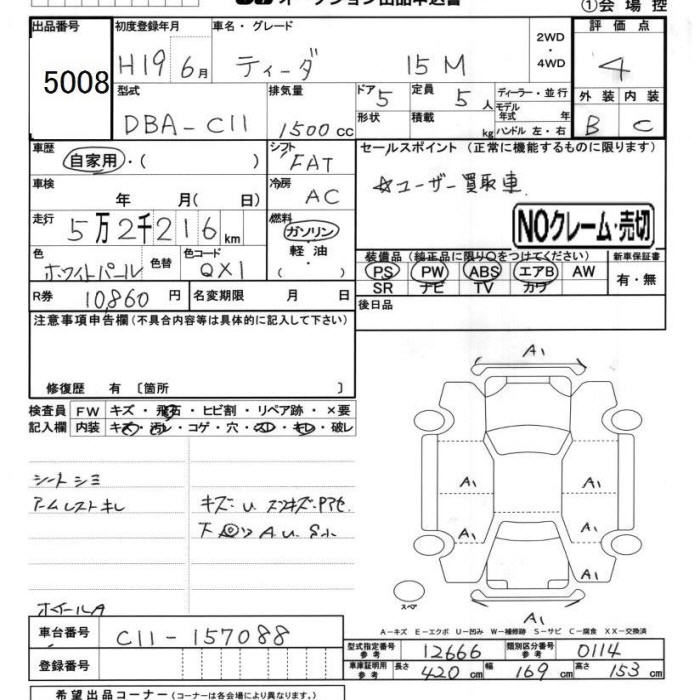 オークション出品申込書
①会場控
出品番号 初度登録年月 車名・グレード 2WD・4WD 評価点
5008 H19 6月 ティーダ 15M 4
型式 排気量 ドア 5 定員 5人 ディーラー・並行 外装 内装
DBA-C11 1500cc 形状 積載 kg モデル年式 年 B C
ハンドル 左・右
車歴 自家用・( ) シフト FAT セールスポイント (正常に機能するものに限ります)
車検 年 月(日) 冷房 AC ☆ユーザー買取車
走行 5万2千216km 燃料 ガソリン NOクレーム・売切
軽油
色 ホワイトパール 色替 色コード QX1 ( ・ )
装備品 (純正品に限り○をつけてください) 新車保証書
PS PW ABS エアB AW 有・無
SR ナビ TV カワ
R券 10,860円 名変期限 月 日 後日品
注意事項申告欄 (不具合内容等は具体的に記入して下さい)
修復歴 有 〔箇所 〕
検査員 FW キズ・飛石・ヒビ割・リペア跡・×要
記入欄 内装 キズ・汚レ・コゲ・穴・スレ・キレ・破レ
シートシミ
アームレストキレ キズ・U
ホイールA
A1
A1 A1
A1 A1
A1
A1
スペア
A-キズ E-エクボ U-凹み W-補修跡 S-サビ C-腐食 XX-交換済
車台番号 C11-157088
型式指定番号 参考 12666 類別区分番号 参考 0114
登録番号
車庫証明用 参考 長さ 420cm 幅 169cm 高さ 153cm
希望出品コーナー (コーナーは各会場により異なります。)